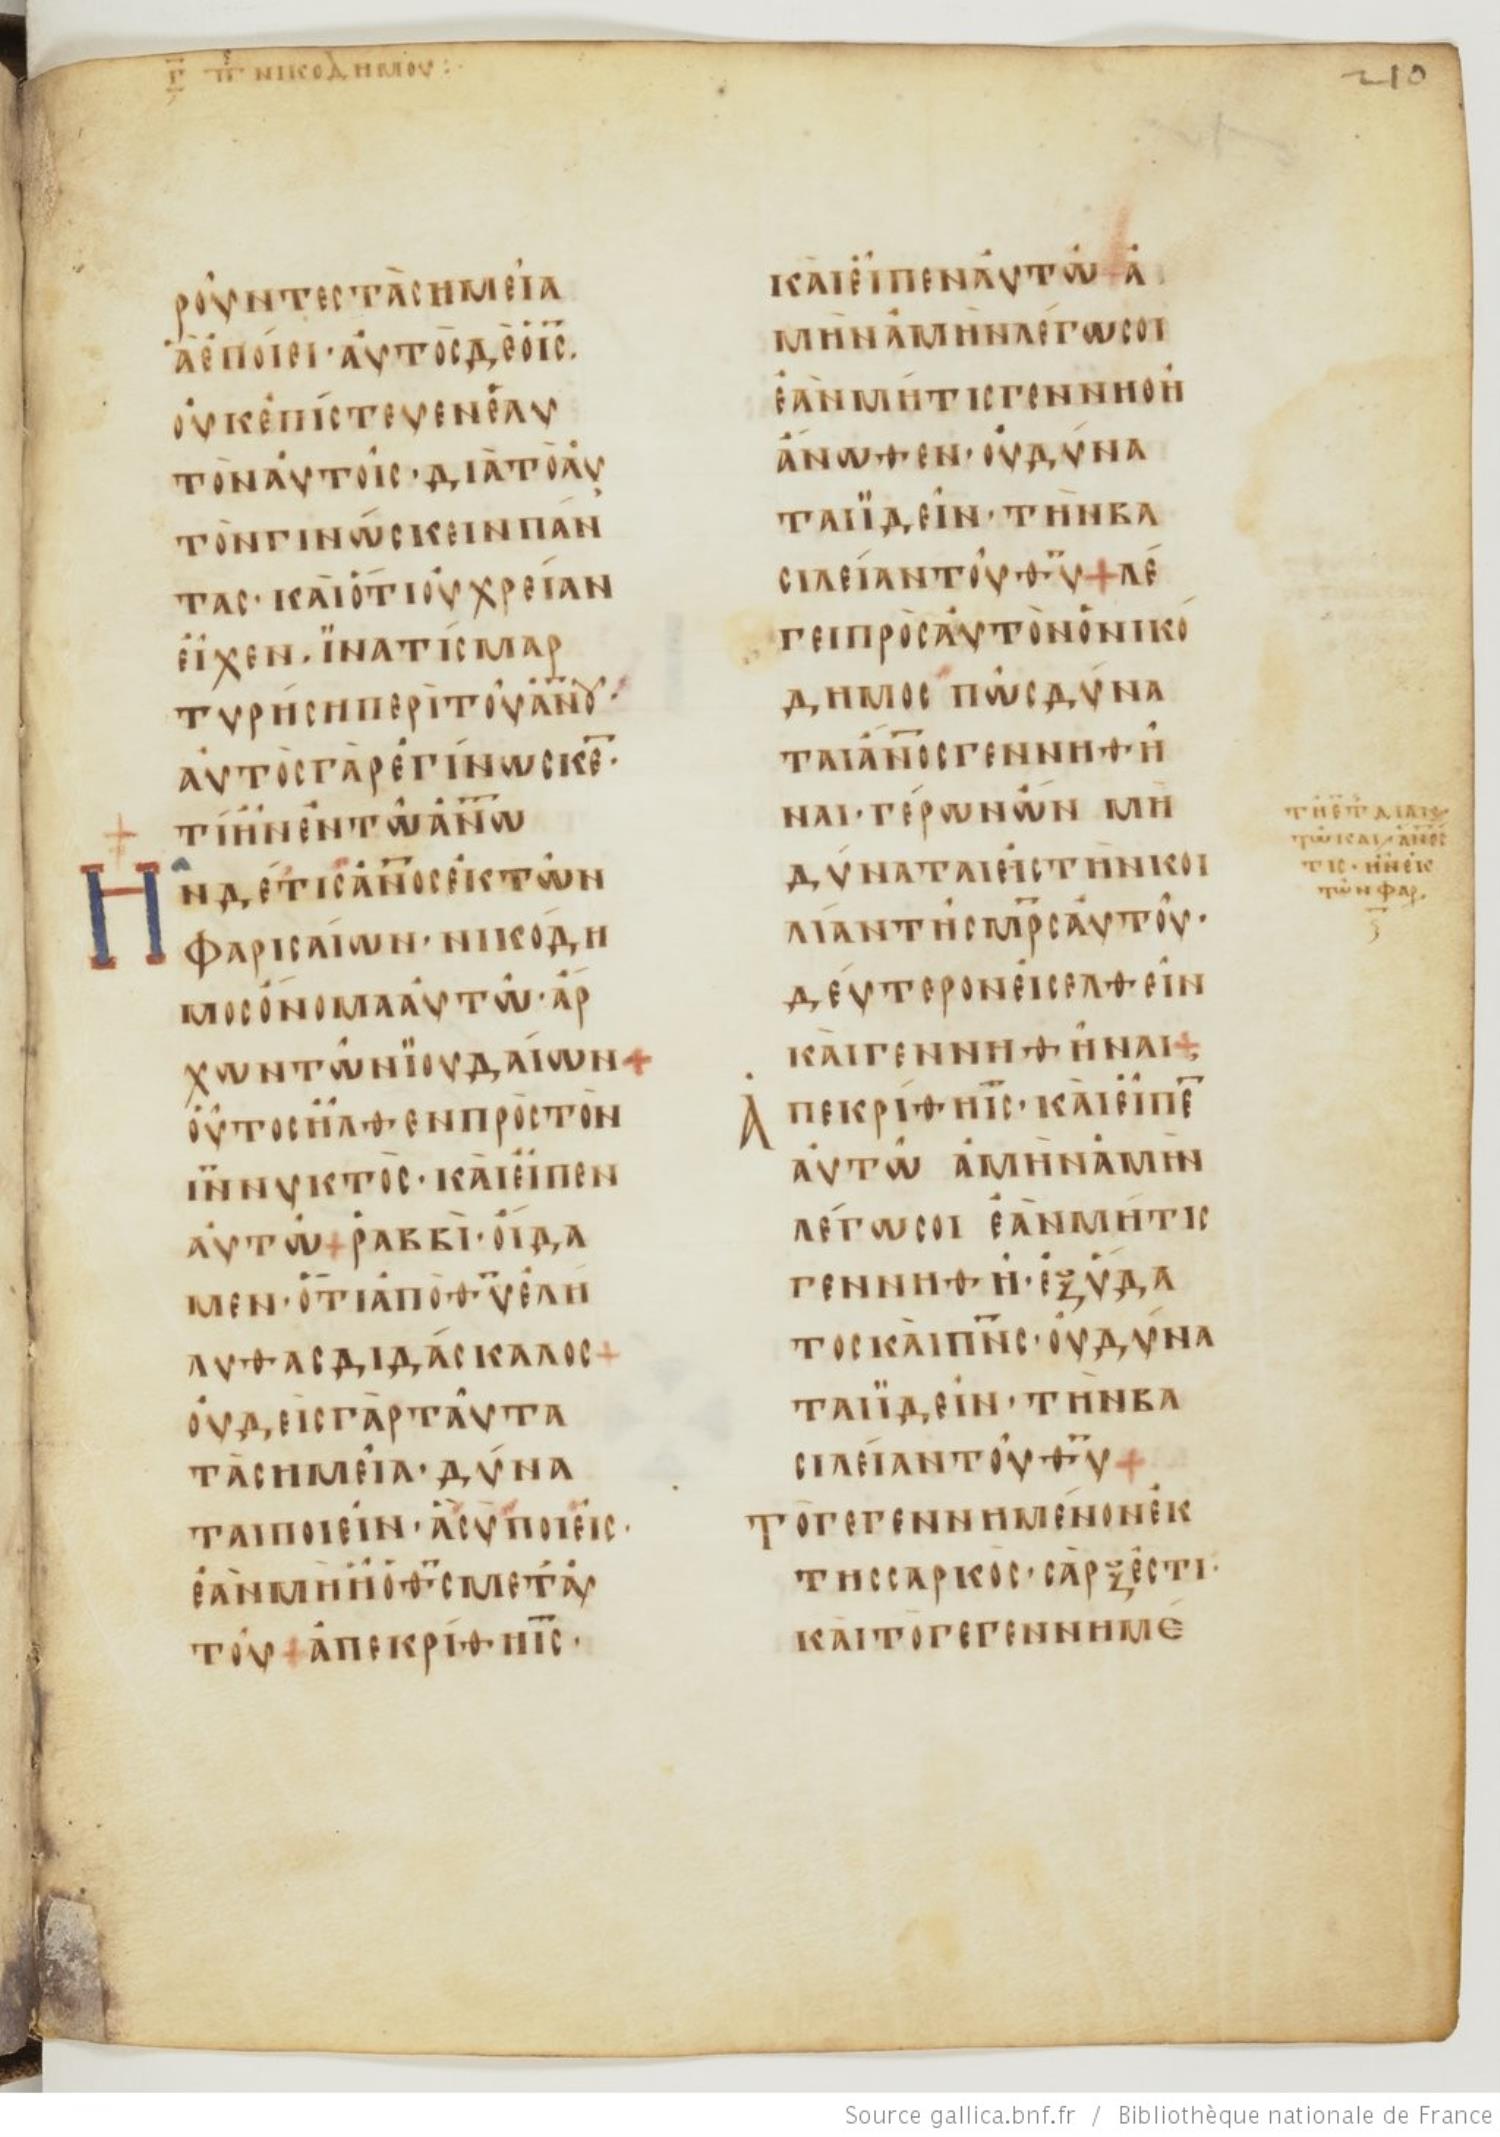 Γ ΠΕΡΙ ΝΙΚΟΔΗΜΟΥ:
210
ΡΟΥ͂ΝΤΕΣΤᾺΣΗΜΕΙ͂Α
ἋἘΠΟΊΕΙ·ἈΥΤῸΣΔΈὉΙΣ.
ὈΥΚἘΠΊΣΤΕΥΕΝἙΑΥ
ΤῸΝἈΥΤΟΙ͂Σ·ΔΙᾺΤῸἈΥ
ΤῸΝΓΙΝΏΣΚΕΙΝΠΆΝ
ΤΑΣ·ΚΑῚὍΤΙὈΥΧΡΕΊΑΝ
ἘΙ͂ΧΕΝ.ἽΝΑΤΊΣΜΑΡ
ΤΥΡΉΣΗΠΕΡῚΤΟΥ͂ἈΝΟΥ·
ἈΥΤῸΣΓᾺΡἘΓΊΝΩΣΚΕ̅·
ΤΊἮΝἘΝΤΩ͂ἈΝΩ
ἮΝΔΈΤΙΣἌΝΟΣἘΚΤΩ͂Ν
ΦΑΡΙΣΑΊΩΝ·ΝΙΚΌΔΗ
ΜΟΣὌΝΟΜΑἈΥΤΩ͂·ἌΡ
ΧΩΝΤΩ͂ΝΪΟΥΔΑΊΩΝ+
ὉΥ͂ΤΟΣἮΛΘΕΝΠΡῸΣΤῸΝ
ΙΝΝΥΚΤῸΣ·ΚΑῚἘΙ͂ΠΕΝ
ἈΥΤΩ͂+ῬΑΒΒῚ·ὈΊΔΑ
ΜΕΝ·ὍΤΙἈΠῸΘΥἘΛΉ
ΛΥΘΑΣΔΙΔΆΣΚΑΛΟΣ+
ὈΥΔΕῚΣΓᾺΡΤΑΥ͂ΤΑ
ΤᾺΣΗΜΕΙ͂Α·ΔΎΝΑ
ΤΑΙΠΟΙΕΙ͂Ν·ἋΣῪΠΟΙΕΙ͂Σ·
ἘᾺΝΜῊἮὉΘΣΜΕΤΆΥ
ΤΟΥ͂+ἈΠΕΚΡΊΘΗΙΣ·
ΚΑῚἘΙ͂ΠΕΝἈΥΤΩ͂+Ἀ
ΜῊΝἈΜῊΝΛΈΓΩΣΟΙ
ἘᾺΝΜΉΤΙΣΓΕΝΝΗΘΗ͂
ἌΝΩΘΕΝ·ὈΥΔΎΝΑ
ΤΑΙΪΔΕΙ͂Ν·ΤῊΝΒΑ
ΣΙΛΕΊΑΝΤΟΥ͂ΘΥ+ΛΈ
ΓΕΙΠΡῸΣἈΥΤῸΝὉΝΙΚΌ
ΔΗΜΟΣ ΠΩ͂ΣΔΎΝΑ
ΤΑΙἌΝΟΣΓΕΝΝΗΘΗ͂
ΝΑΙ·ΓΈΡΩΝὬΝ ΜῊ
ΔΎΝΑΤΑΙἘΙΣΤῊΝΚΟΙ
ΛΊΑΝΤΗ͂ΣΜΡΣἈΥΤΟΥ͂·
ΔΕΎΤΕΡΟΝἘΙΣΕΛΘΕΙ͂Ν
ΚΑῚΓΕΝΝΗΘΗ͂ΝΑΙ+
ἈΠΕΚΡΊΘΗΙΣ·ΚΑῚἘΙ͂ΠΕ̅
ἈΥΤΩ͂ ἈΜῊΝἈΜῊΝ
ΛΈΓΩΣΟΙ ἘᾺΝΜΉΤΙΣ
ΓΕΝΝΗΘΗ͂·ἘΞΎΔΑ
ΤΟΣΚΑῚΠΝΣ·ὈΥΔΎΝΑ
ΤΑΙΪΔΕΙ͂Ν·ΤῊΝΒΑ
ΣΙΛΕΊΑΝΤΟΥ͂ΘΥ+
ΤῸΓΕΓΕΝΝΗΜΈΝΟΝἘΚ
ΤΗΣΣΑΡΚῸΣ·ΣᾺΡΞἘΣΤΙ·
ΚΑῚΤῸΓΕΓΕΝΝΗΜΈ
ΤΩ ΚΑΙΡΩ ἈΝΟΣ
ΤΙΣ·ἮΝἘΚ
ΤΩ͂Ν ΦΑΡ,
Source gallica.bnf.fr / Bibliothèque nationale de France